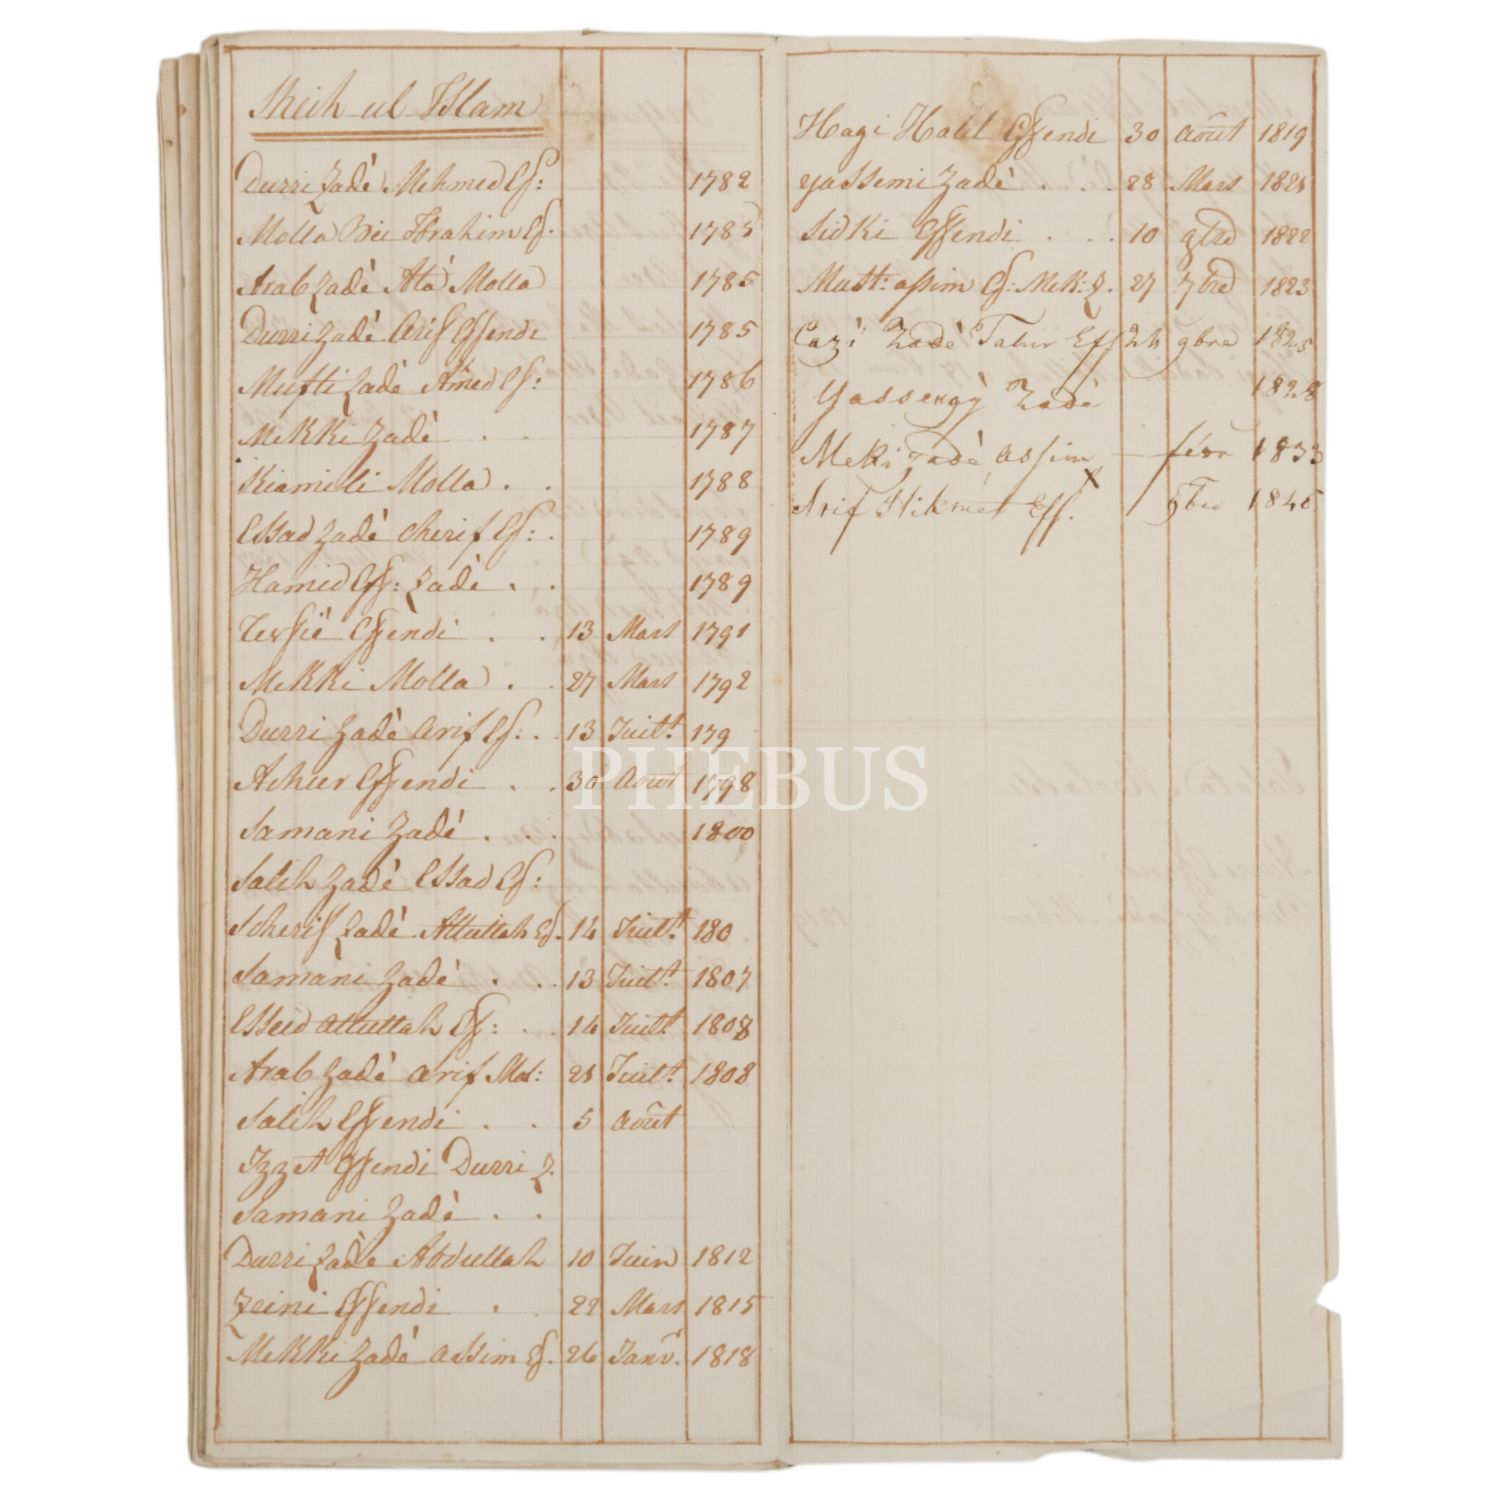 Sheih ul Islam
Durri Zadè Mehmed Ef: 1782
Molla Bei Ibrahim Ef. 1785
Arab Zadè Ata Molla 1785
Durri Zadè Arif Effendi 1785
Mufti Zadè Amed Ef: 1786
Mekki Zadè . . 1787
Kiamili Molla . . 1788
Essad Zadè Cherif Ef: . 1789
Hamid Eff: Zadè . . 1789
Effendi . . 13 Mars 1791
Mekki Molla . . 27 Mars 1792
Durri Zadè Arif Ef: . 13 Juilt. 179
Achir Effendi . . 30 Aout 1798
Samani Zadè . . . 1800
Salih Zadè Essad Ef:
Scherif Zadè Attullah Ef. 14 Juilt. 180
Samani Zadè . . 13 Juilt. 1807
Esseid Attullah Ef: . . 14 Juilt. 1808
Arab Zadè Arif Mol: 21 Juilt. 1808
Salih Effendi . . 5 Août
Izzet Effendi Durri Z.
Samani Zadè . .
Durri Zadè Abdullah 10 Juin 1812
Zeini Effendi . . 22 Mars 1815
Mekki Zadè Assim Ef. 26 Janv. 1818
Hagi Halil Effendi 30 Août 1819
Yassemi Zadè . . . 28 Mars 1821
Sidki Effendi . . . 10 9bre 1822
Must: Assim Ef: Mek: Z. 27 7bre 1823
Cazi Zadè Tahir Eff 24 9bre 1825
Zadè 1828
Meki Zadè Assim févr 1833
Arif Hikmet Eff. 1845
PHEBUS